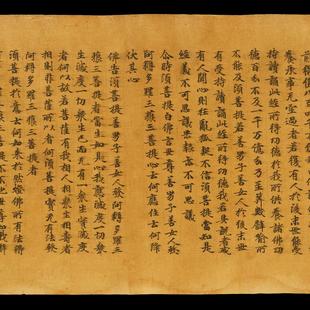 養承事无空過者若復有人於後末世能受
持讀誦此經所得功德於我所供養諸佛功
德百分不及一千万億分乃至筭數譬喻所
不能及須菩提若善男子善女人於後末世
有受持讀誦此經所得功德我若具說者或
有人聞心則狂亂狐疑不信須菩提當知是
經義不可思議果報亦不可思議
尒時須菩提白佛言世尊善男子善女人發
阿耨多羅三藐三菩提心云何應住云何降
伏其心
佛告須菩提善男子善女人發阿耨多羅三
藐三菩提者當生如是心我應滅度一切衆
生滅度一切衆生已而无有一衆生實滅度
者何以故若菩薩有我相人相衆生相壽者
相則非菩薩所以者何須菩提實无有法發
阿耨多羅三藐三菩提者
須菩提於意云何如來於然燈佛所有法得